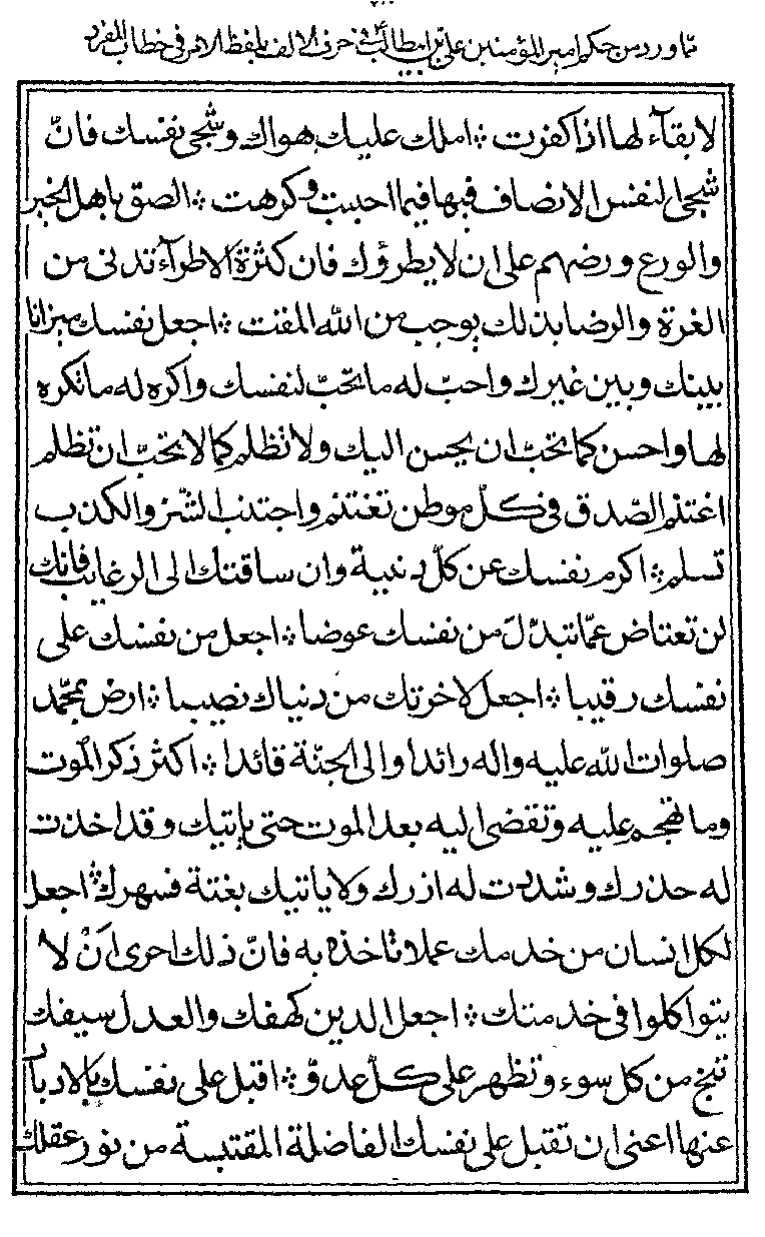 مما ورد من حكم امير المؤمنين علي بن ابيطالب في حرف الالف بلفظ الامر في خطاب المفرد
لا بقآء لها اذا كفرت ؞ املك عليك هواك وشجى نفسك فانّ
شجى النفس الانصاف فيها فيما احببت وكرهت ؞ الصق باهل الخير
والورع ورضهم على ان لا يطروك فان كثرة الاطرآء تدنى من
الغرة والرضا بذلك يوجب من الله المقت ؞ اجعل نفسك ميزانا
بينك وبين غيرك واحبّ له ما تحبّ لنفسك واكره له ما تكره
لها واحسن كما تحبّ ان يحسن اليك ولا تظلم كما لا تحبّ ان تظلم
اغتنم الصّدق في كلّ موطن تغتنم واجتنب الشّر والكذب
تسلم ؞ اكرم نفسك عن كلّ دنية وان ساقتك الى الرغايب فانك
لن تعتاض عمّا تبذل من نفسك عوضا ؞ اجعل من نفسك على
نفسك رقيبا ؞ اجعل لاخرتك من دنياك نصيبا ؞ ارض بمحمّد
صلوات الله عليه واله رائدا والى الجنّة قائدا ؞ اكثر ذكر الموت
وما تهجم عليه وتقضى اليه بعد الموت حتى ياتيك وقد اخذت
له حذرك وشددت له ازرك ولا ياتيك بغتة فسهرك ؞ اجعل
لكل انسان من خدمك عملا تاخذه به فانّ ذلك احرى انْ لا
يتواكلوا في خدمتك ؞ اجعل الدين كهفك والعدل سيفك
تنج من كل سوء وتظهر على كلّ عدوّ ؞ اقبل على نفسك بالادبار
عنها اعنى ان تقبل على نفسك الفاضلة المقتبسة من نور عقلك